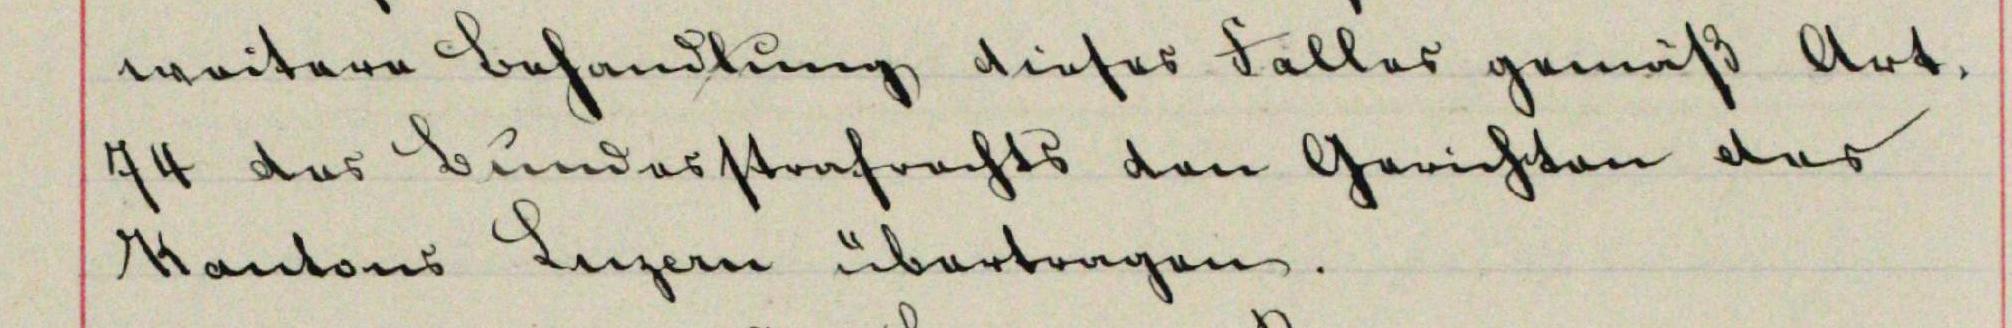 weitere Behandlung dieses Falles gemäß Art.
74 des Bundesstrafrechts den Gerichten des
Kantons Luzern übertragen.